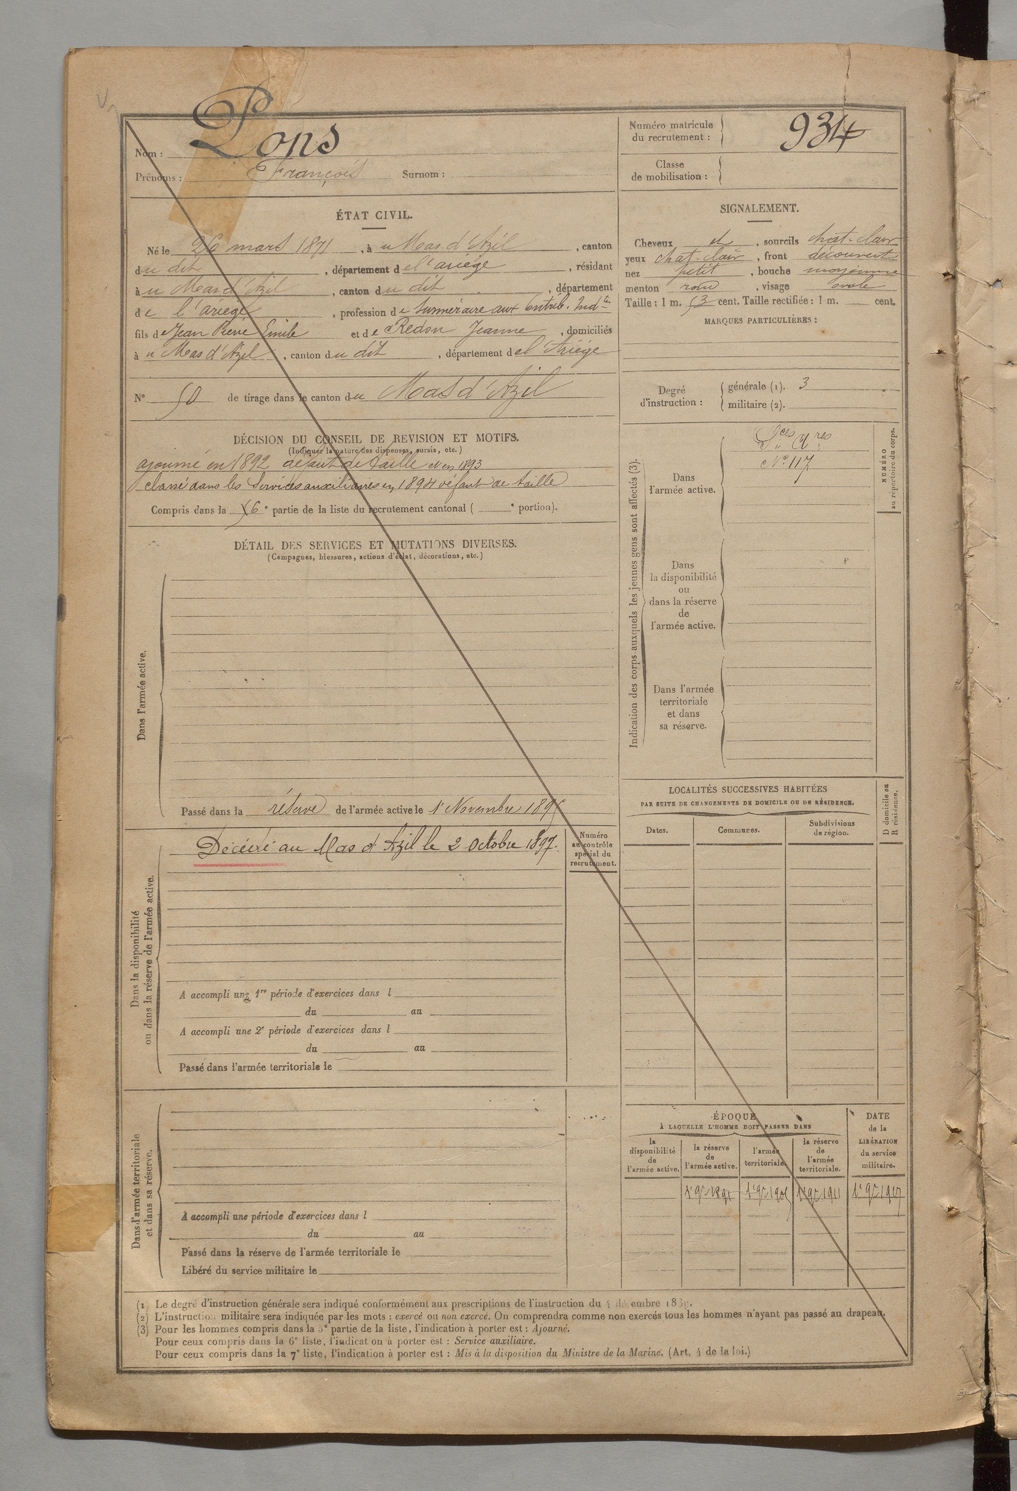 Nom : Pons
Prénoms : François Surnom :
Numéro matricule du recrutement : 934
Classe de mobilisation :
ÉTAT CIVIL.
Né le 26 mars 1871, à u Mas d'Azil, canton
du dit, département de l'ariège, résidant
à u Mas d'Azil, canton du dit, département
de l'ariège, profession de Surnuméraire aux Contrib. Ind.tes
fils de Jean René Emile et de Redon Jeanne, domiciliés
à u Mas d'Azil, canton du dit, département de l'Ariège
N° 50 de tirage dans le canton du Mas d'Azil
SIGNALEMENT.
Cheveux et, sourcils chat-clair
yeux chat-clair, front découvert
nez petit, bouche moyenne
menton rond, visage ovale
Taille : 1 m. 53 cent. Taille rectifiée : 1 m. cent.
MARQUES PARTICULIÈRES :
Degré d'instruction : générale (1). 3
militaire (2).
DÉCISION DU CONSEIL DE REVISION ET MOTIFS.
(Indiquer la nature des dispenses, sursis, etc.)
ajourné en 1892 défaut de taille et en 1893
classé dans les Services auxiliaires en 1894 défaut de taille
Compris dans la 6e partie de la liste du recrutement cantonal ( e portion).
DÉTAIL DES SERVICES ET MUTATIONS DIVERSES.
(Campagnes, blessures, actions d'éclat, décorations, etc.)
Dans l'armée active.
Passé dans la réserve de l'armée active le 1er Novembre 1895
Dans la disponibilité
ou dans la réserve de l'armée active.
Décédé au Mas d'Azil le 2 Octobre 1897.
Numéro
au contrôle
spécial du
recrutement.
A accompli une 1re période d'exercices dans l
du au
A accompli une 2e période d'exercices dans l
du au
Passé dans l'armée territoriale le
Dans l'armée territoriale
et dans sa réserve.
A accompli une période d'exercices dans l
du au
Passé dans la réserve de l'armée territoriale le
Libéré du service militaire le
Indication des corps auxquels les jeunes gens sont affectés (3).
Dans
l'armée active.
Sces Aires
N° 117
NUMÉRO
au répertoire du corps.
Dans
la disponibilité
ou
dans la réserve
de
l'armée active.
Dans l'armée
territoriale
et dans
sa réserve.
LOCALITÉS SUCCESSIVES HABITÉES
PAR SUITE DE CHANGEMENTS DE DOMICILE OU DE RÉSIDENCE.
Dates. Communes. Subdivisions
de région.
D domicile ou
R résidence.
ÉPOQUE
À LAQUELLE L'HOMME DOIT PASSER DANS
la
disponibilité
de
l'armée active.
la réserve
de
l'armée active.
l'armée
territoriale.
la réserve
de
l'armée
territoriale.
DATE
de la
LIBÉRATION
du service
militaire.
1er 9bre 1895 1er 9bre 1905 1er 9bre 1911 1er 9bre 1917
(1) Le degré d'instruction générale sera indiqué conformément aux prescriptions de l'instruction du 4 décembre 1889.
(2) L'instruction militaire sera indiquée par les mots : exercé ou non exercé. On comprendra comme non exercés tous les hommes n'ayant pas passé au drapeau.
(3) Pour les hommes compris dans la 5e partie de la liste, l'indication à porter est : Ajourné.
Pour ceux compris dans la 6e liste, l'indication à porter est : Service auxiliaire.
Pour ceux compris dans la 7e liste, l'indication à porter est : Mis à la disposition du Ministre de la Marine. (Art. 4 de la loi.)